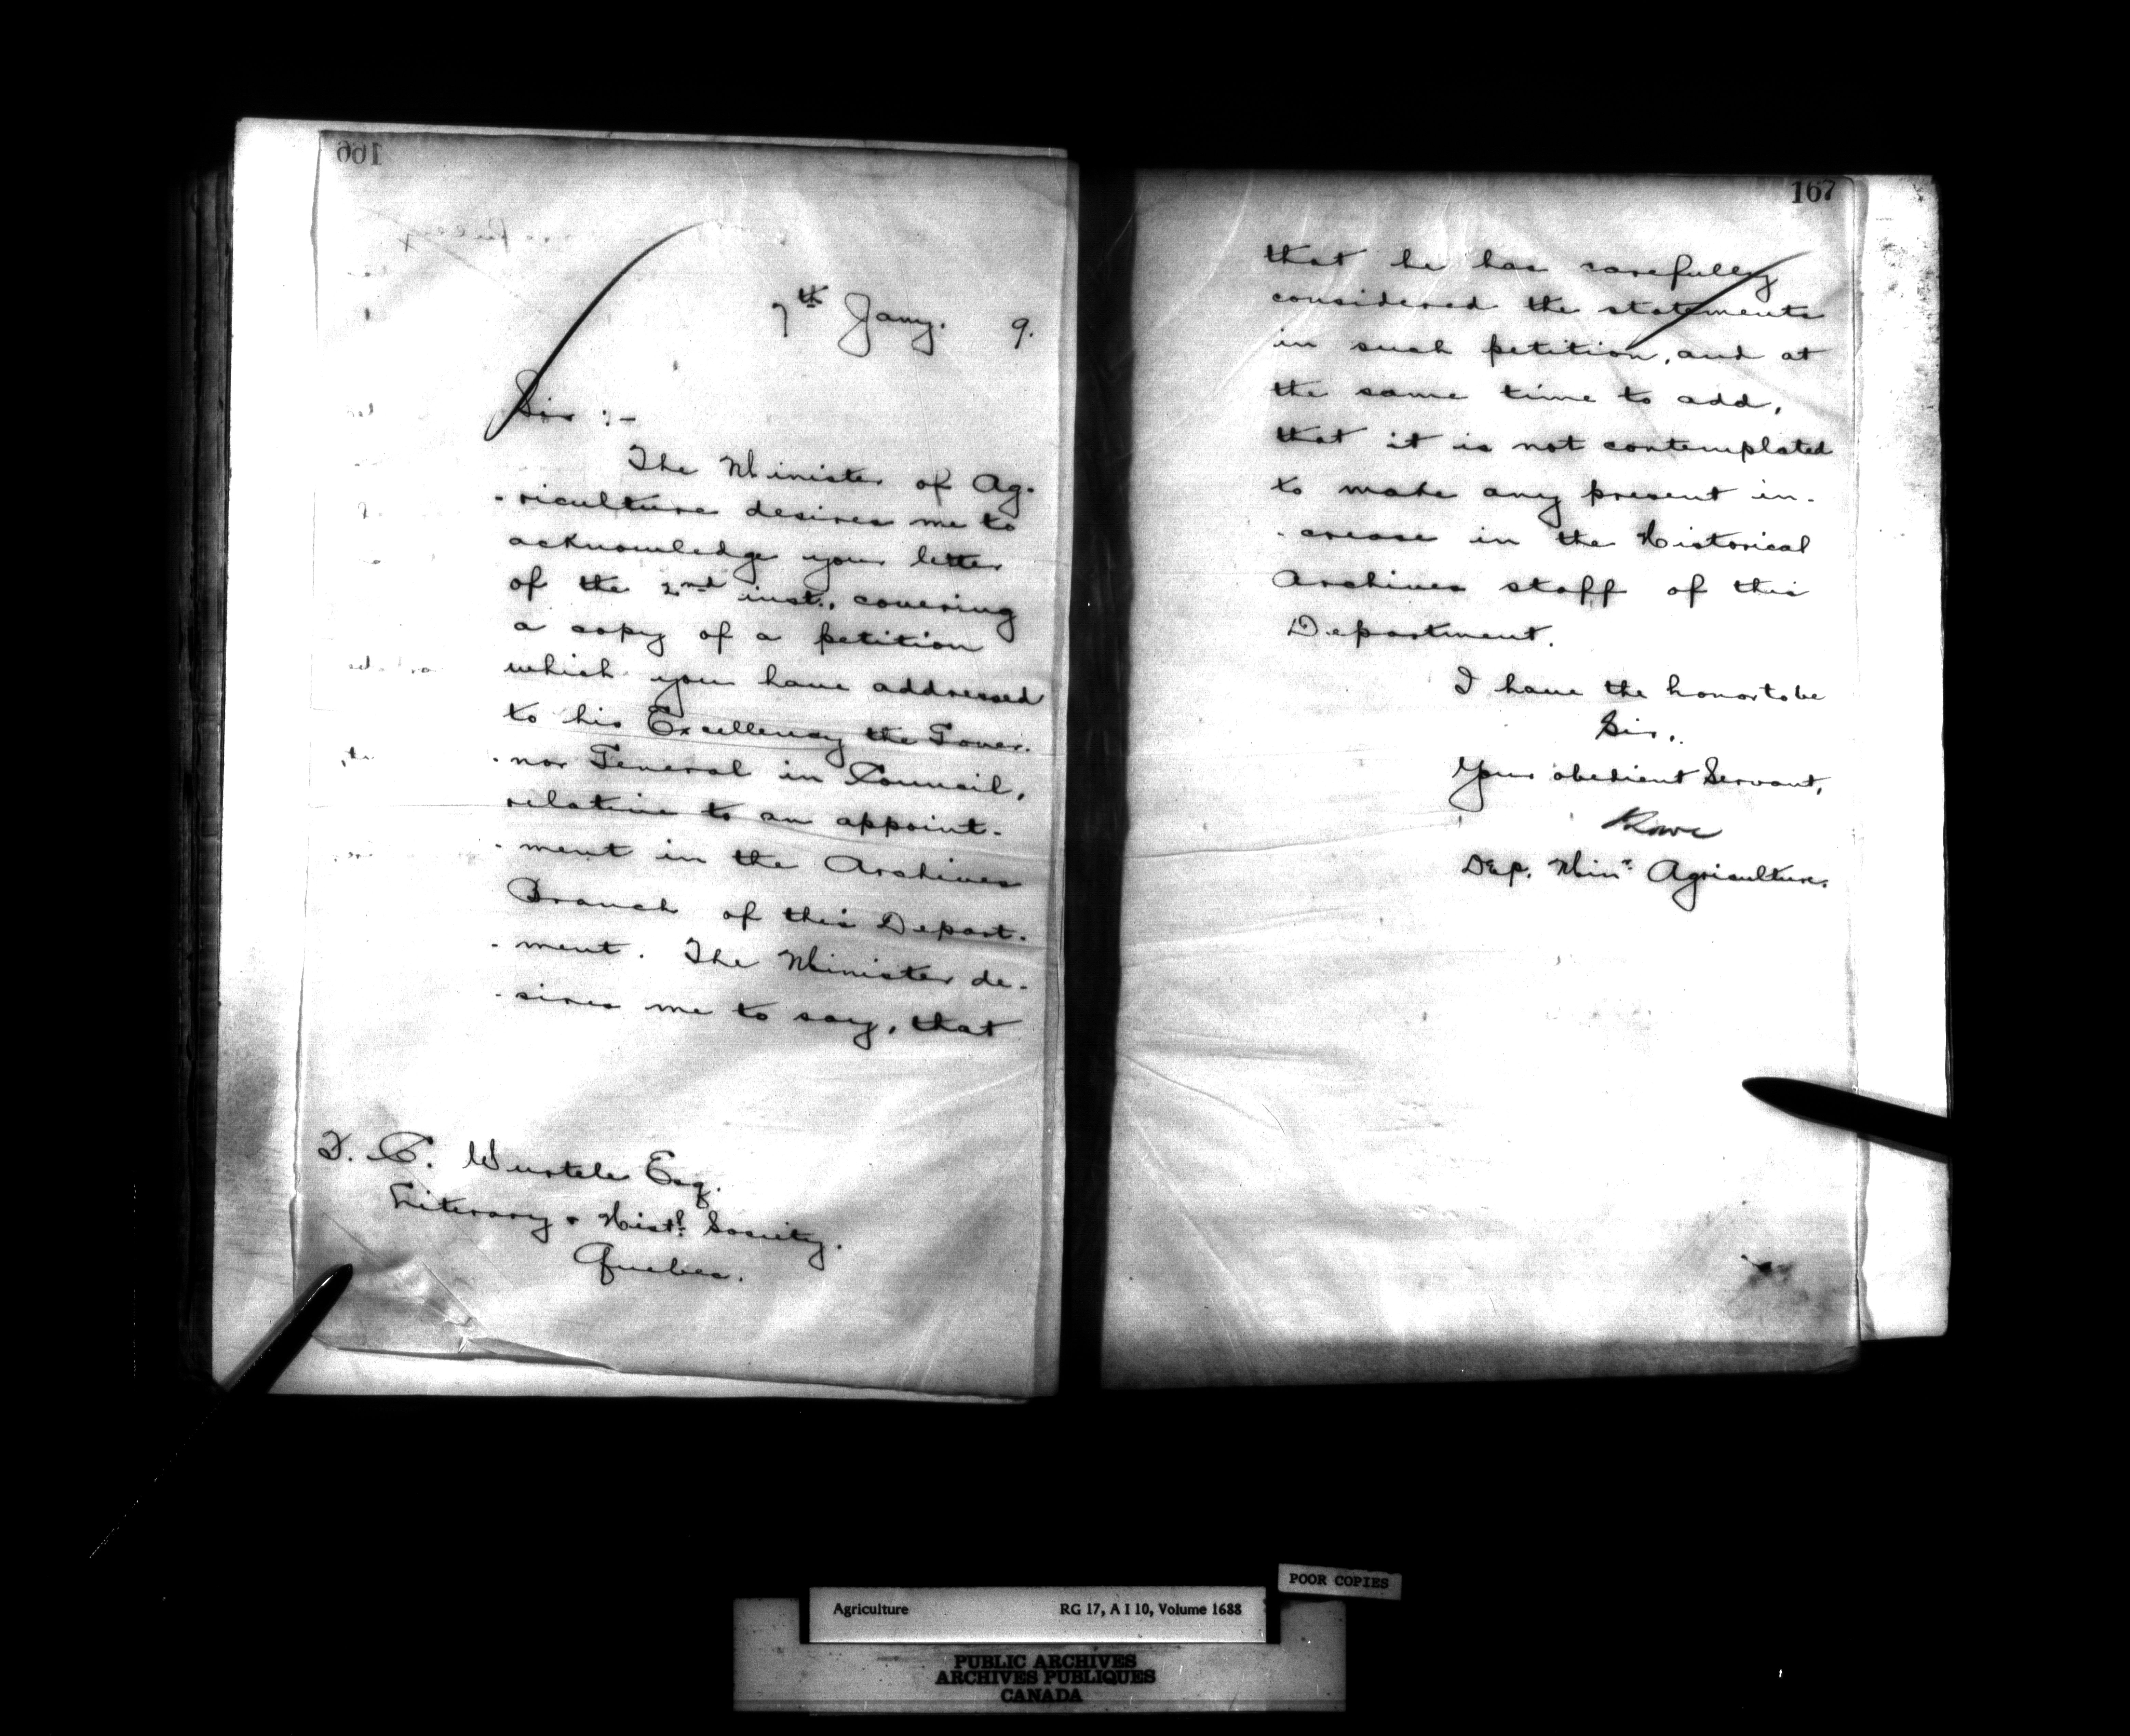 166
7th Jany. 9.
Sir :-
The Minister of Ag-
-riculture desires me to
acknowledge your letter
of the 2nd inst., covering
a copy of a petition
which you have addressed
to his Excellency the Gover-
-nor General in Council,
relative to an appoint-
-ment in the Archives
Branch of this Depart-
-ment. The Minister de-
-sires me to say, that
F. C. Wurtele Esq.
Literary & Histl. Society.
Quebec.
167
that he has carefully
considered the statements
in such petition, and at
the same time to add,
that it is not contemplated
to make any present in-
-crease in the Historical
Archives staff of this
Department.
I have the honor to be
Sir,
Your obedient Servant,
Dep. Minr Agriculture.
POOR COPIES
Agriculture RG 17, A I 10, Volume 1688
PUBLIC ARCHIVES
ARCHIVES PUBLIQUES
CANADA